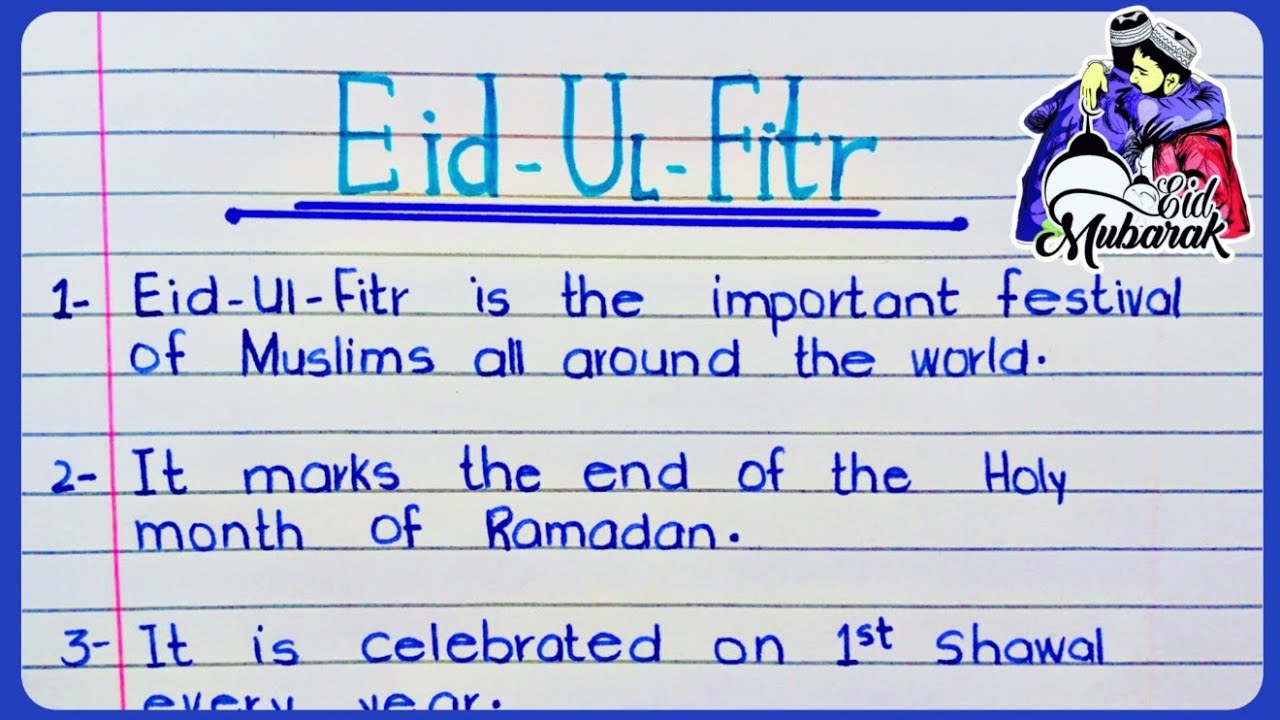 Eid-Ul-Fitr
Eid Mubarak
1- Eid-Ul-Fitr is the important festival
of Muslims all around the world.
2- It marks the end of the Holy
month of Ramadan.
3- It is celebrated on 1st Shawal
every year.